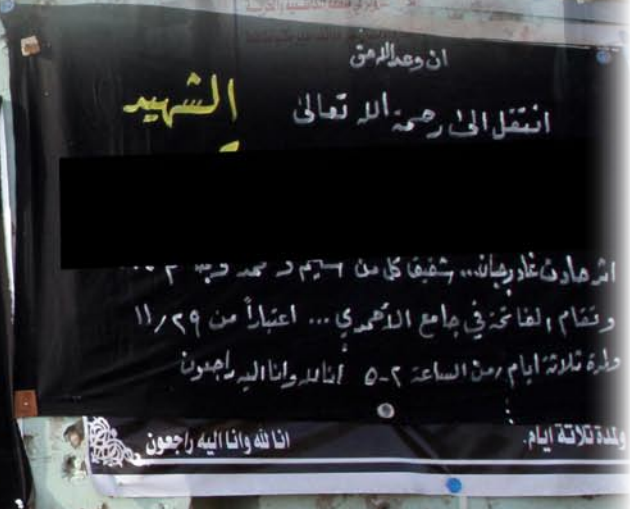 ان وعد الله حق
انتقل الى رحمة الله تعالى الشهيد
اثر حادث غادر جبان... شقيق كل من
وتقام الفاتحة في جامع الأحمدي... اعتباراً من ١١/٢٩
ولمدة ثلاثة ايام من الساعة ٢-٥ انا لله وانا اليه راجعون
ولمدة ثلاثة ايام. انا لله وانا اليه راجعون